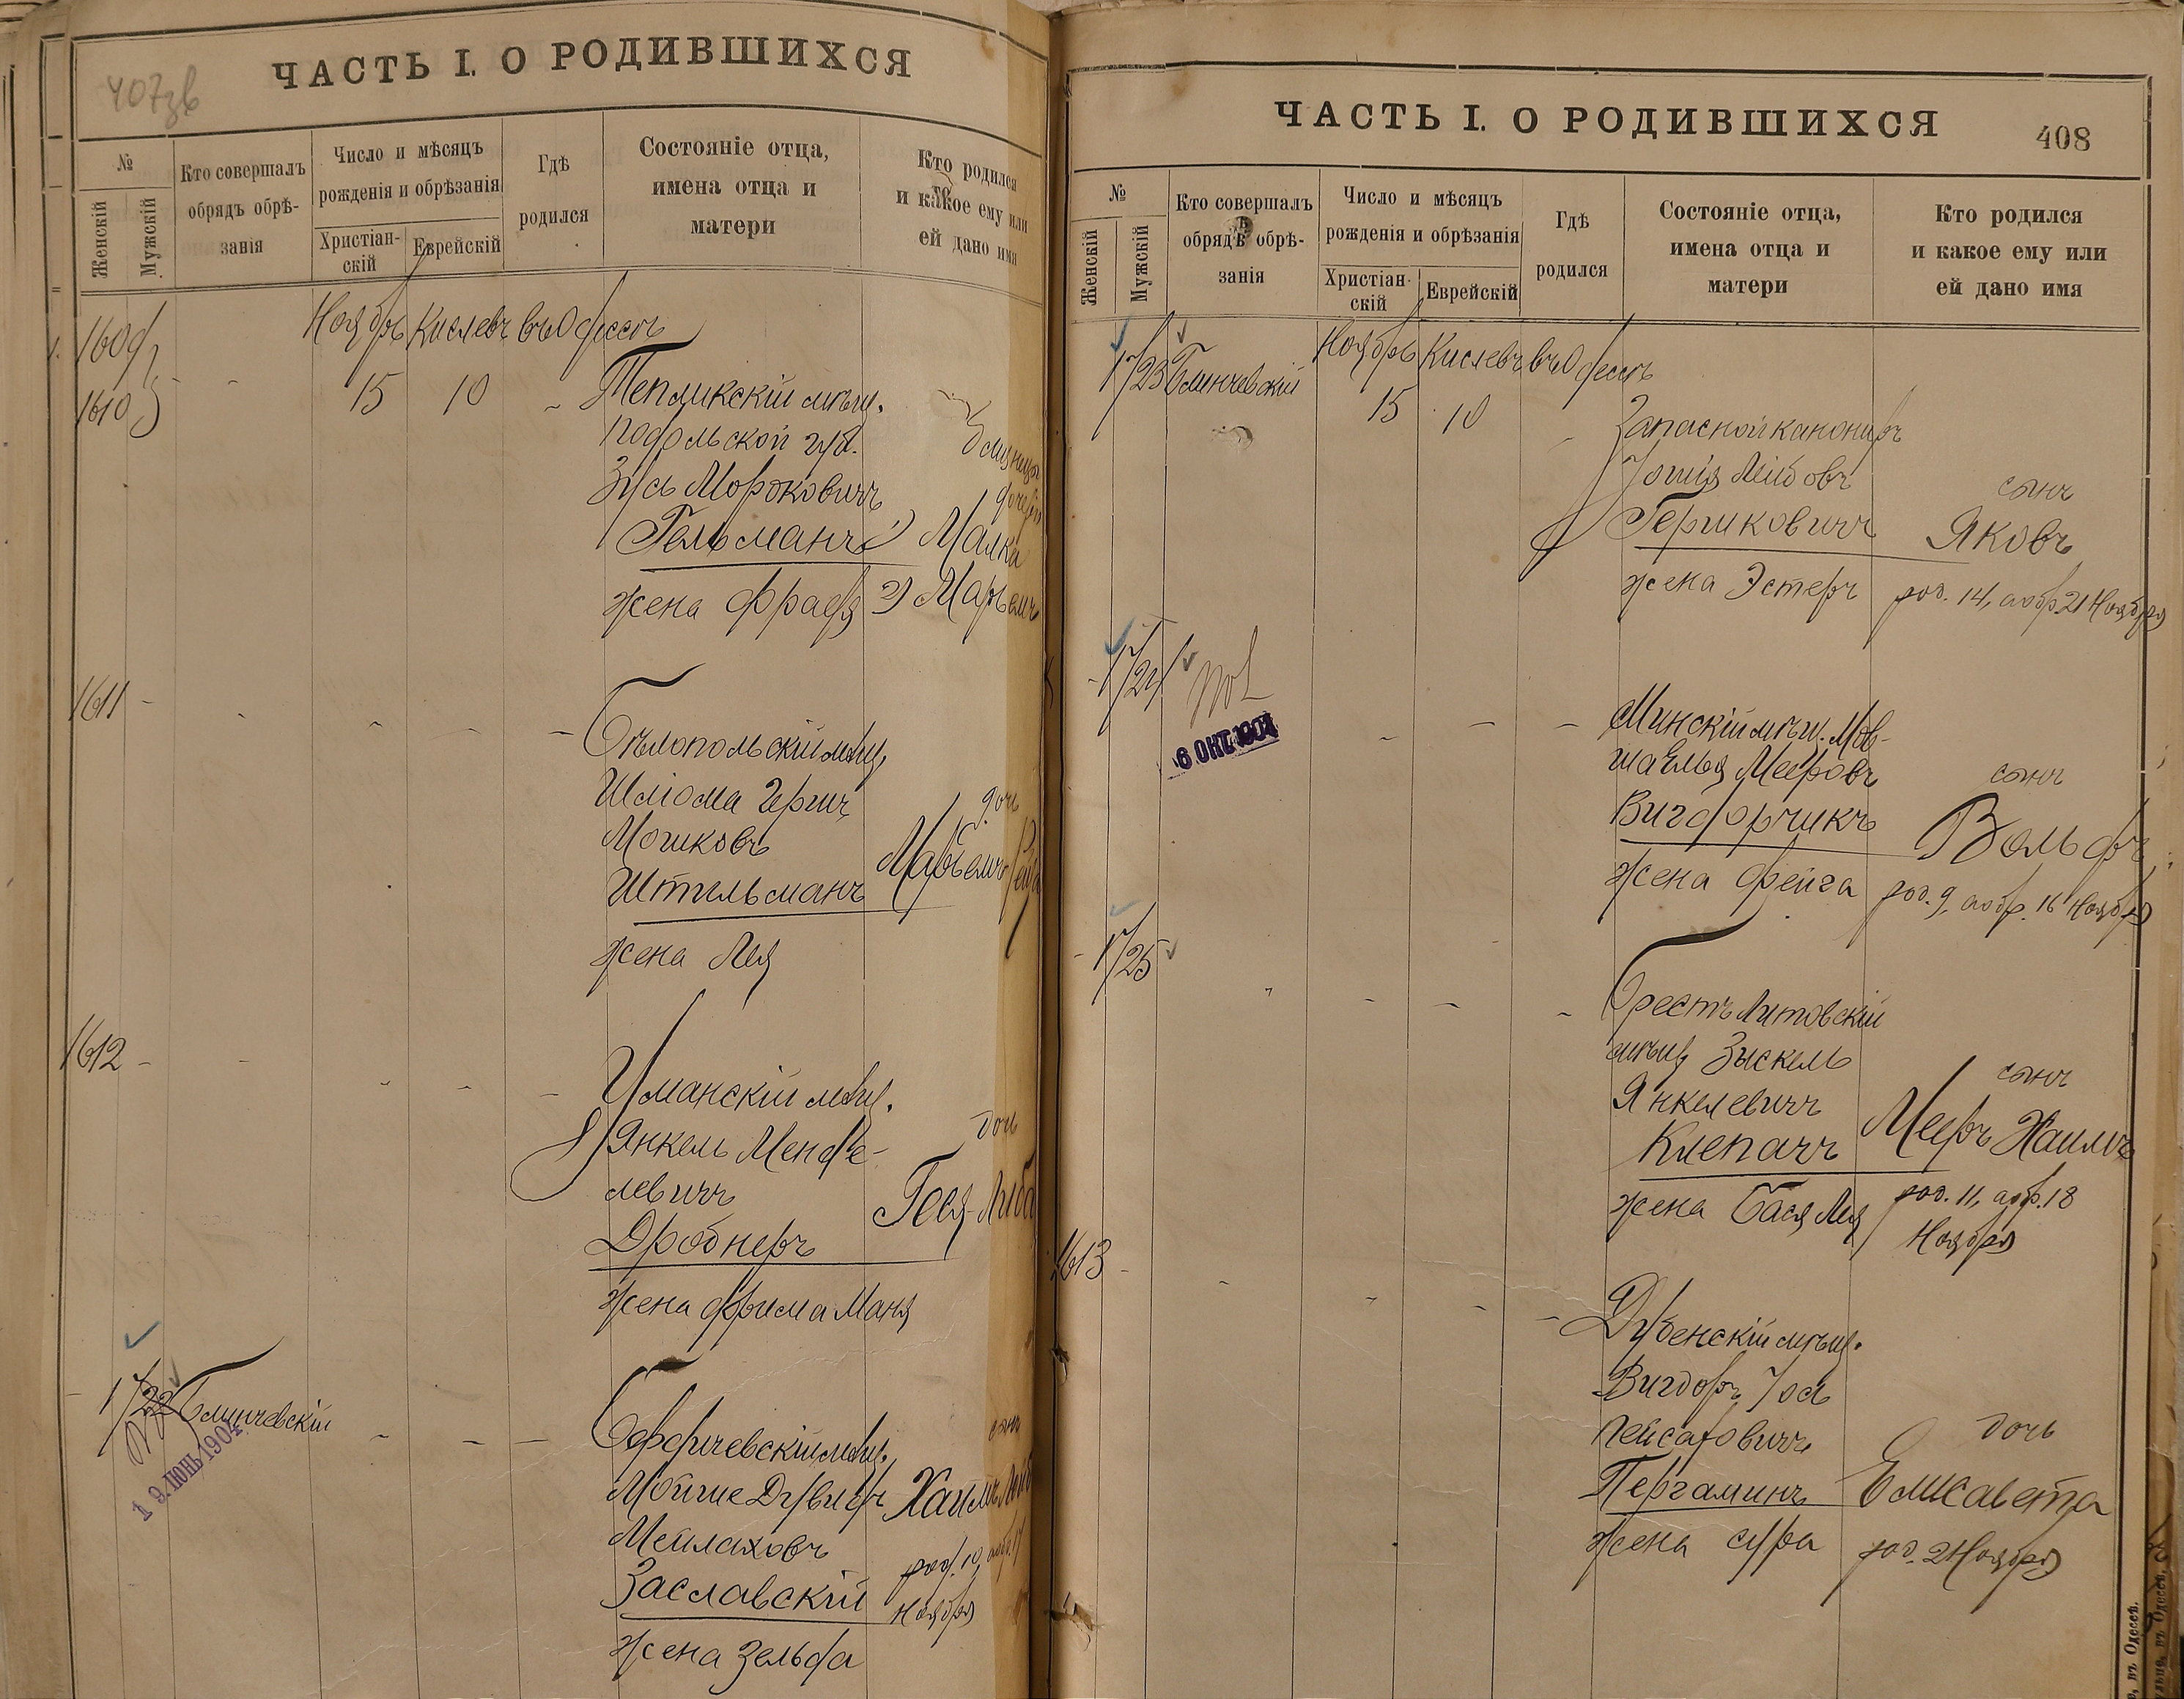 407 зв
ЧАСТЬ I. О РОДИВШИХСЯ
№
Женскій
Мужскій
Кто совершалъ
обрядъ обрѣ-
занія
Число и мѣсяцъ
рожденія и обрѣзанія
Христіан-
скій
Еврейскій
Гдѣ
родился
Состояніе отца,
имена отца и
матери
Кто родился
и какое ему или
ей дано имя
1609
1610
Ноябрь Кислевъ въ Одессѣ
15 10
Тепликскій мѣщ.
Подольской губ.
Зусь Морковичъ
Гельманъ
жена Фрадя
близнецы
дочери
1) Малка
2) Марьемъ
1611
Бѣлопольскій мѣщ.
Шліома Гершъ
Мошковъ
Штильманъ
жена Лея
дочь
Марьемъ
1612
Уманскій мѣщ.
Янкель Менде-
левичъ
Дробнеръ
жена Фрима Маня
дочь
Гося-Либа
1722 Блинчевскій
19 ІЮНЬ 1904
Бердичевскій мѣщ.
Мойше Дувидъ
Мейлаховъ
Заславскій
жена Зельда
сынъ
Хаимъ Лейб
род. 10, обр. 17
Ноября
ЧАСТЬ I. О РОДИВШИХСЯ
408
№
Женскій
Мужскій
Кто совершалъ
обрядъ обрѣ-
занія
Число и мѣсяцъ
рожденія и обрѣзанія
Христіан-
скій
Еврейскій
Гдѣ
родился
Состояніе отца,
имена отца и
матери
Кто родился
и какое ему или
ей дано имя
1723 Блинчевскій
Ноябрь Кислевъ въ Одессѣ
15 10
Запасной канониръ
Іошія Лейбовъ
Гершковичъ
жена Эстеръ
сынъ
Яковъ
род. 14, а обр. 21 Ноября
1724
6 ОКТ. 1904
Минскій мѣщ. Мов-
ша Елья Мееровъ
Вигдорчикъ
жена Фейга
сынъ
Вольфъ
род. 9, а обр. 16 Ноября
1725
Брестъ Литовскій
мѣщ. Зыскель
Янкелевичъ
Клепачъ
жена Бася Лея
сынъ
Мееръ Хаимъ
род. 11, а обр. 18
Ноября
1613
Дубенскій мѣщ.
Вигдоръ Іось
Пейсаховичъ
Пергаминъ
жена Сура
дочь
Елисавета
род. 2 Ноября
въ Одессѣ.